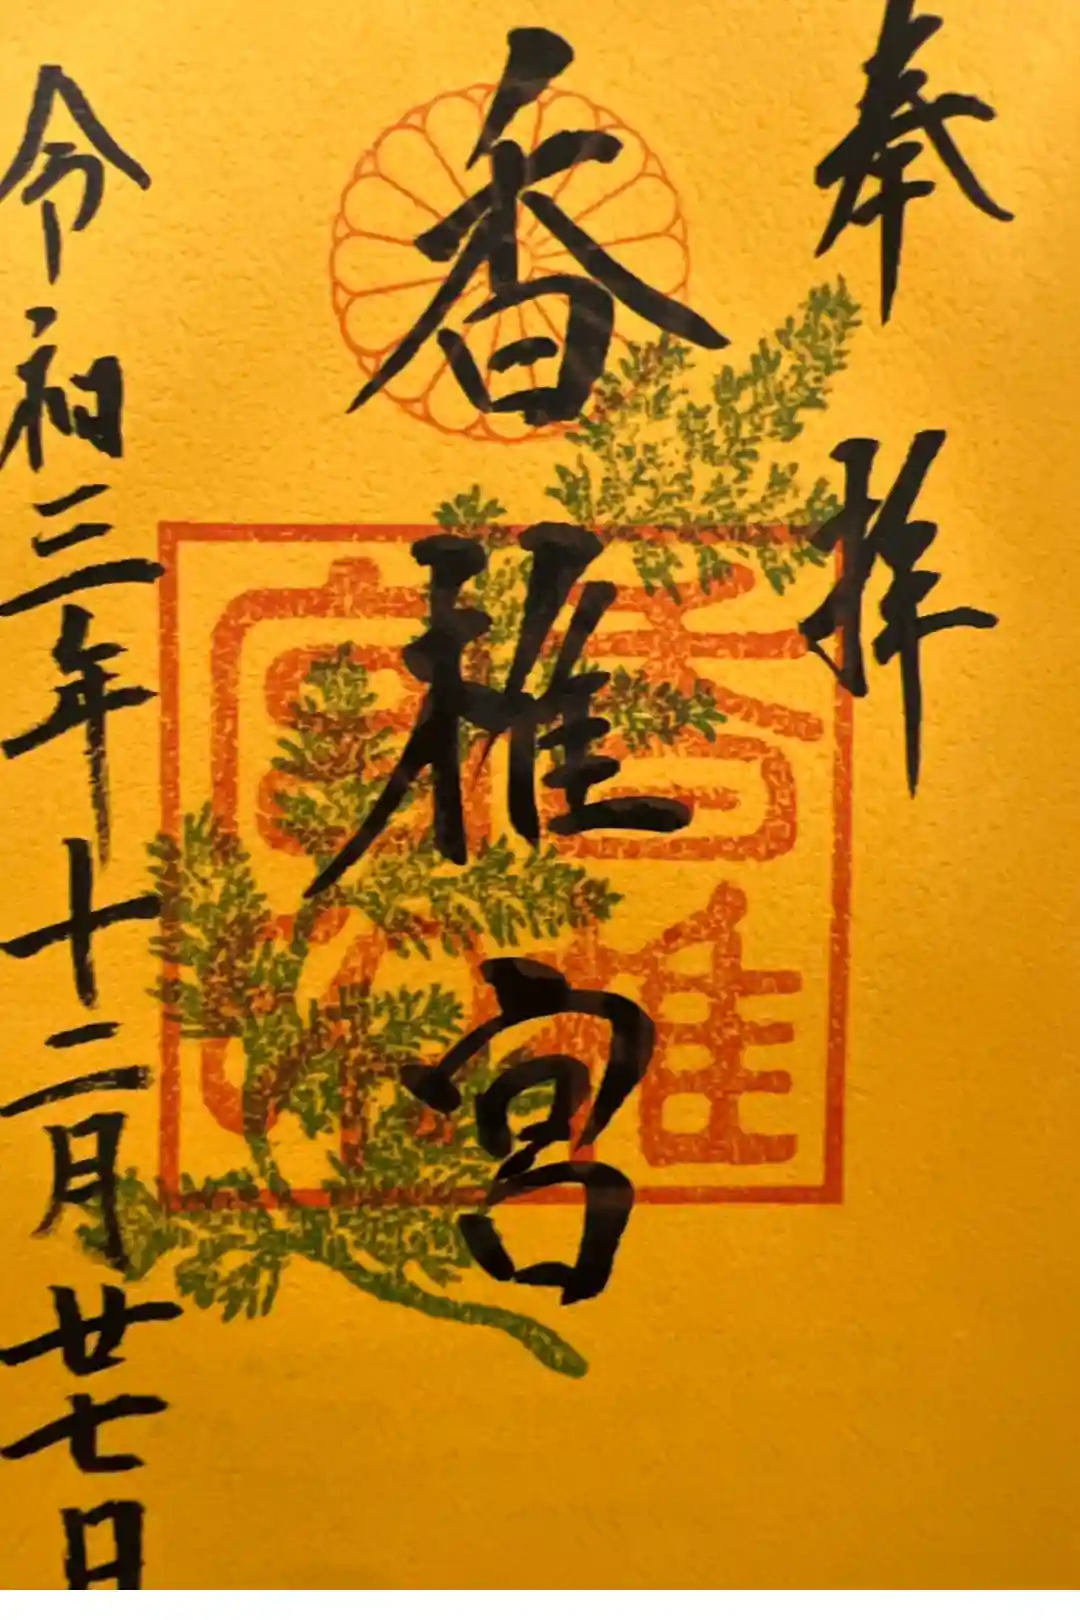 奉拝
香椎宮
令和三年十二月廿七日
香椎
宮印